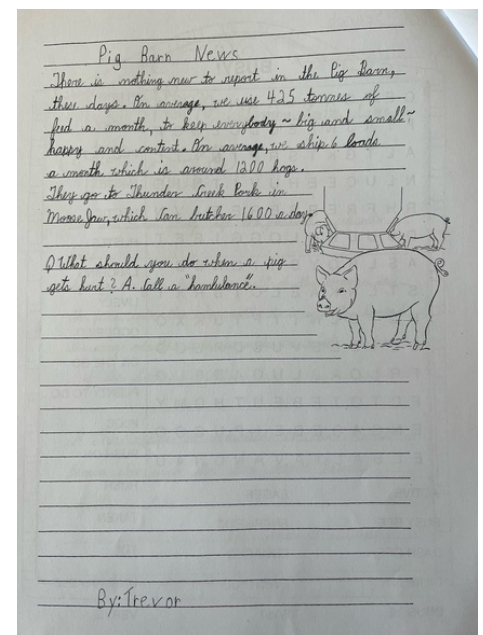 Pig Barn News
There is nothing new to report in the Pig Barn,
these days. On average, we use 425 tonnes of
feed a month, to keep everybody ~ big and small ~
happy and content. On average, we ship 6 loads
a month which is around 1200 hogs.
They go to Thunder Creek Pork in
Moose Jaw, which can butcher 1600 a day.
Q What should you do when a pig
gets hurt? A. Call a "hambulance".
By: Trevor